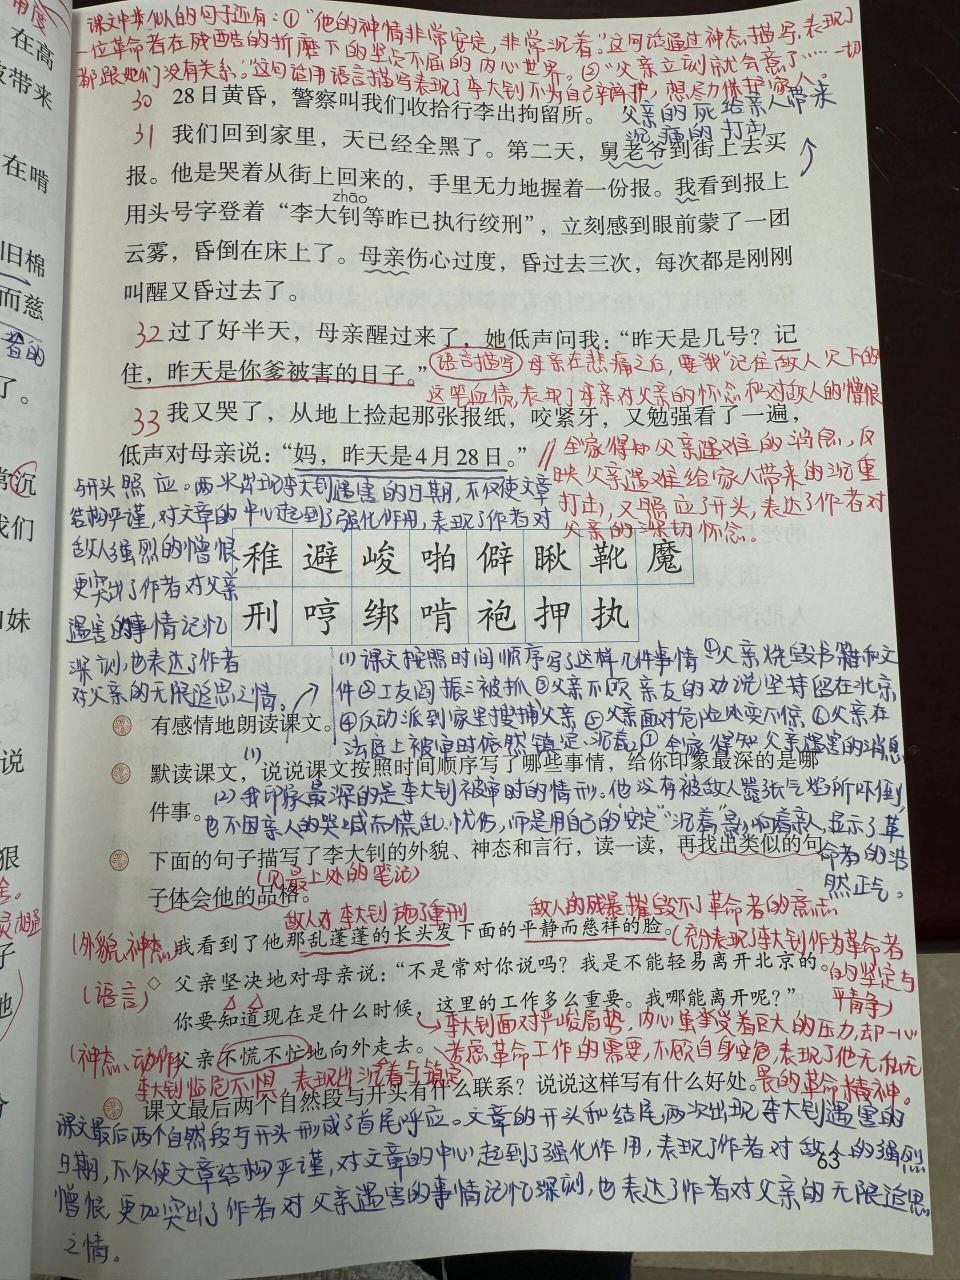 课文中类似的句子还有：①“他的神情非常安定，非常沉着。”这句话通过神态描写，表现了
一位革命者在残酷的折磨下的坚贞不屈的内心世界。②“父亲立刻就会意了……一切
都跟她们没有关系。”这句话用语言描写表现了李大钊不为自己辩护，想尽力保护家人。
30 28日黄昏，警察叫我们收拾行李出拘留所。
父亲的死给亲人带来
沉痛的打击
31 我们回到家里，天已经全黑了。第二天，舅老爷到街上去买
报。他是哭着从街上回来的，手里无力地握着一份报。我看到报上
zhāo
用头号字登着“李大钊等昨已执行绞刑”，立刻感到眼前蒙了一团
云雾，昏倒在床上了。母亲伤心过度，昏过去三次，每次都是刚刚
叫醒又昏过去了。
32 过了好半天，母亲醒过来了，她低声问我：“昨天是几号？记
住，昨天是你爹被害的日子。”
语言描写 母亲在悲痛之后，要“我”记住敌人欠下的
这笔血债，表现了母亲对父亲的怀念和对敌人的憎恨
33 我又哭了，从地上捡起那张报纸，咬紧牙，又勉强看了一遍，
低声对母亲说：“妈，昨天是4月28日。”
全家得知父亲遇难的消息，反
映父亲遇难给家人带来的沉重
打击，又照应了开头，表达了作者对
父亲的深切怀念。
与开头照应。两次出现李大钊遇害的日期，不仅使文章
结构严谨，对文章的中心起到了强化作用，表现了作者对
敌人强烈的憎恨
更突出了作者对父亲
遇害的事情记忆
深刻，也表达了作者
对父亲的无限追思之情。
稚 避 峻 啪 僻 瞅 靴 魔
刑 哼 绑 啃 袍 押 执
(1) 课文按照时间顺序写了这样几件事情 ①父亲烧毁书籍和文
件②工友阎振三被抓③父亲不顾亲友的劝说坚持留在北京
④反动派到家里搜捕父亲 ⑤父亲面对危险处变不惊 ⑥父亲在
法庭上被审时依然镇定、沉着 ⑦全家得知父亲遇害的消息
有感情地朗读课文。
(1)
默读课文，说说课文按照时间顺序写了哪些事情，给你印象最深的是哪
件事。
(2) 我印象最深的是李大钊被审时的情形。他没有被敌人嚣张气焰所吓倒，
也不因亲人的哭喊而慌乱、忧伤，而是用自己的“安定”“沉着”影响着亲人，显示了革
命者的浩
然正气。
下面的句子描写了李大钊的外貌、神态和言行，读一读，再找出类似的句
子体会他的品格。
(见最上处的笔记)
敌人对李大钊施了重刑
敌人的残暴摧毁不了革命者的意志
(外貌、神态)
我看到了他那乱蓬蓬的长头发下面的平静而慈祥的脸。
(充分表现了李大钊作为革命者
的坚定与
平静)
(语言)
◇ 父亲坚决地对母亲说：“不是常对你说吗？我是不能轻易离开北京的。
你要知道现在是什么时候，这里的工作多么重要。我哪能离开呢？”
李大钊面对严峻局势，内心虽承受着巨大的压力，却一心
考虑革命工作的需要，不顾自身安危，表现了他无私无
畏的革命精神。
(神态、动作)
父亲不慌不忙地向外走去。
李大钊临危不惧，表现出沉着与镇定
课文最后两个自然段与开头有什么联系？说说这样写有什么好处。
课文最后两个自然段与开头形成了首尾呼应。文章的开头和结尾两次出现李大钊遇害的
日期，不仅使文章结构严谨，对文章的中心起到了强化作用，表现了作者对敌人的强烈
63
憎恨，更加突出了作者对父亲遇害的事情记忆深刻，也表达了作者对父亲的无限追思
之情。